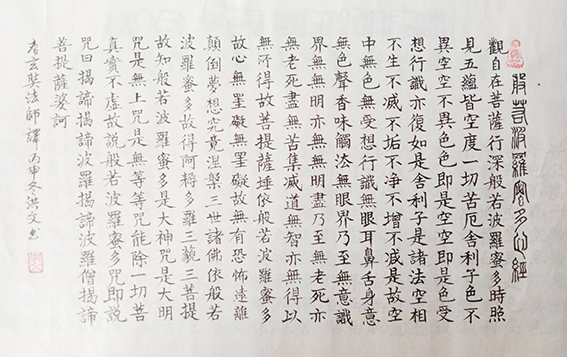 般若波羅蜜多心經
觀自在菩薩行深般若波羅蜜多時照
見五蘊皆空度一切苦厄舍利子色不
異空空不異色色即是空空即是色受
想行識亦復如是舍利子是諸法空相
不生不滅不垢不淨不增不減是故空
中無色無受想行識無眼耳鼻舌身意
無色聲香味觸法無眼界乃至無意識
界無無明亦無無明盡乃至無老死亦
無老死盡無苦集滅道無智亦無得以
無所得故菩提薩埵依般若波羅蜜多
故心無罣礙無罣礙故無有恐怖遠離
顛倒夢想究竟涅槃三世諸佛依般若
波羅蜜多故得阿耨多羅三藐三菩提
故知般若波羅蜜多是大神咒是大明
咒是無上咒是無等等咒能除一切苦
真實不虛故說般若波羅蜜多咒即說
咒曰揭諦揭諦波羅揭諦波羅僧揭諦
菩提薩婆訶
玄奘法師譯 丙申冬洪文书